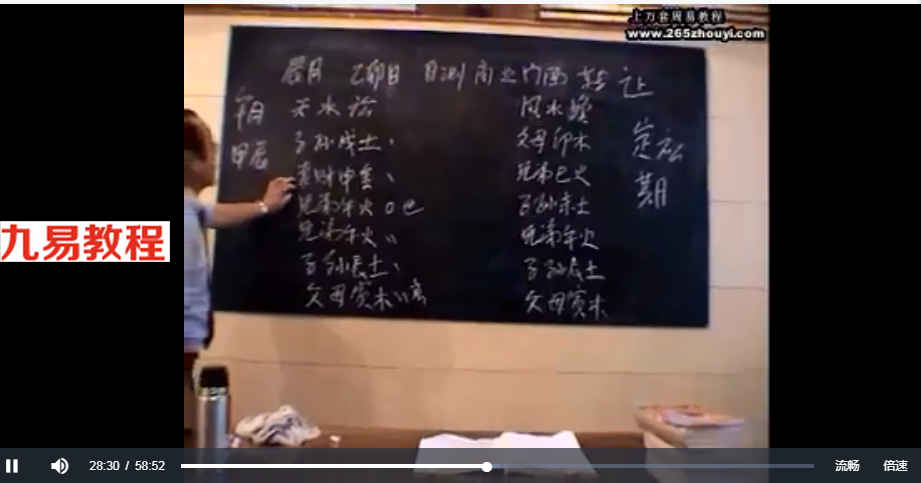 上万套周易教程
www.265zhouyi.com
辰月 乙卯日 自测商业门面转让
定应期
甲辰
天水讼
子孙戌土、
妻财申金、
兄弟午火〇巳
兄弟午火〃
子孙辰土、
父母寅木〃
风水涣
父母卯木
兄弟巳火
子孙未土
兄弟午火
子孙辰土
父母寅木
九易教程
28:30 / 58:52
流畅
倍速